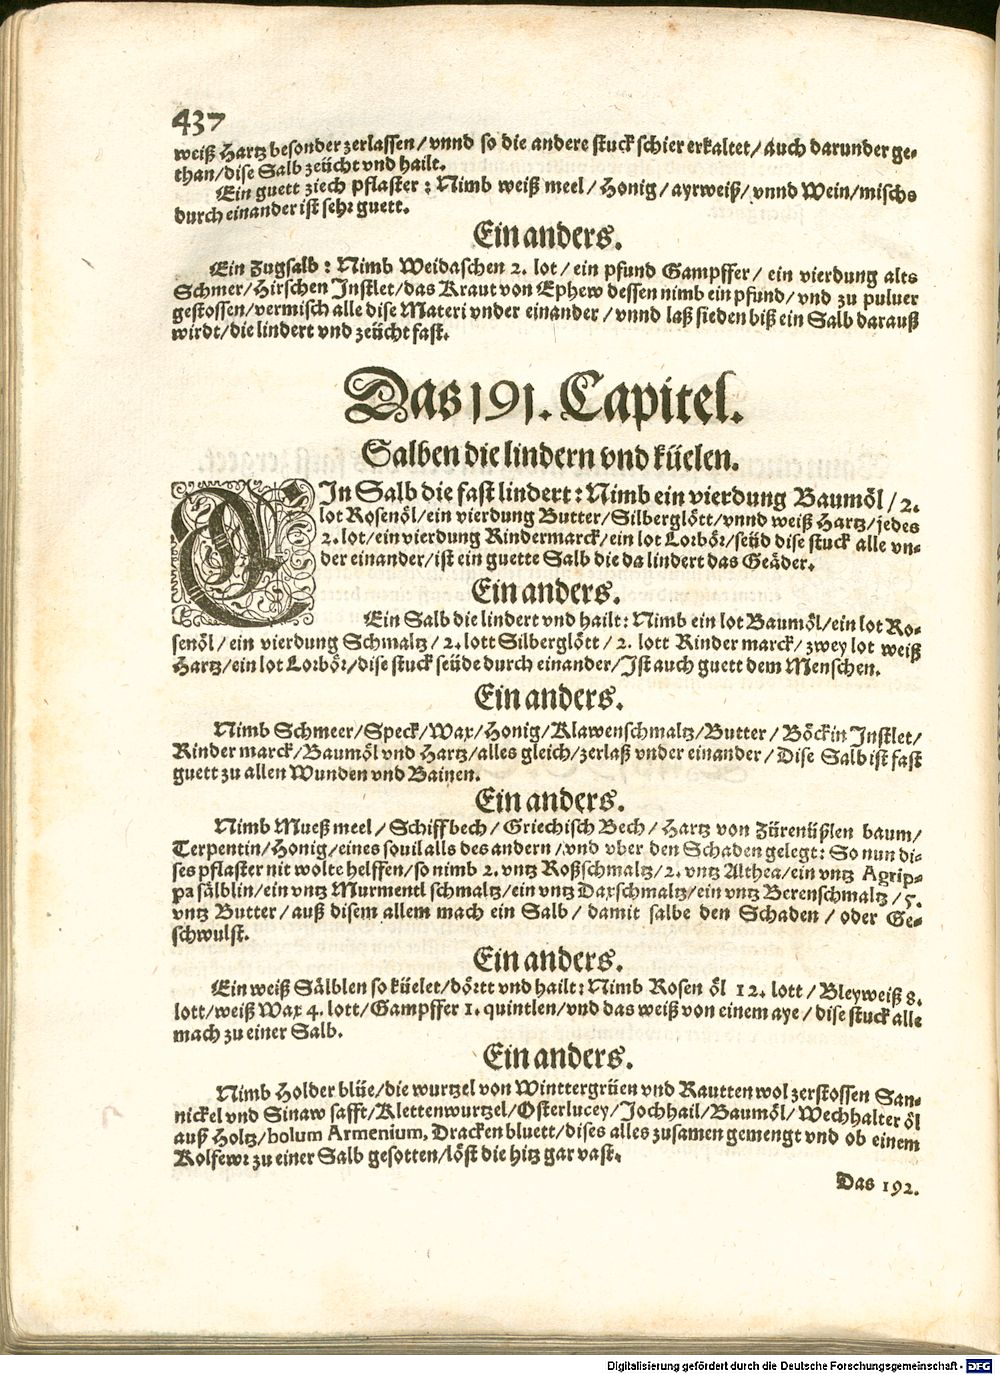 437
weiß Hartz besonder zerlassen/ vnnd so die andere stuck schier erkaltet/ auch darunder ge-
than/ dise Salb zeücht vnd hailt.
Ein guett ziech pflaster : Nimb weiß meel/ Honig/ ayrweiß/ vnnd Wein/ mischs
durch einander ist sehr guett.
Ein anders.
Ein Zugsalb : Nimb Weidaschen 2. lot/ ein pfund Gampffer/ ein vierdung alts
Schmer/ Hirschen Instlet/ das Kraut von Ephew dessen nimb ein pfund/ vnd zu puluer
gestossen/ vermisch alle dise Materi vnder einander/ vnnd laß sieden biß ein Salb darauß
wirdt/ die lindert vnd zeücht fast.
Das 191. Capitel.
Salben die lindern vnd küelen.
EIn Salb die fast lindert : Nimb ein vierdung Baumöl/ 2.
lot Rosenöl/ ein vierdung Butter/ Silberglött/ vnnd weiß Hartz/ jedes
2. lot/ ein vierdung Rindermarck/ ein lot Lorbör/ seüd dise stuck alle vn-
der einander/ ist ein guette Salb die da lindert das Geäder.
Ein anders.
Ein Salb die lindert vnd hailt : Nimb ein lot Baumöl/ ein lot Ro-
senöl/ ein vierdung Schmaltz/ 2. lott Silberglött/ 2. lott Rinder marck/ zwey lot weiß
Hartz/ ein lot Lorbör/ dise stuck seüde durch einander/ Ist auch guett dem Menschen.
Ein anders.
Nimb Schmeer/ Speck/ Wax/ Honig/ Klawenschmaltz/ Butter/ Böckin Instlet/
Rinder marck/ Baumöl vnd Hartz/ alles gleich/ zerlaß vnder einander/ Dise Salb ist fast
guett zu allen Wunden vnd Bainen.
Ein anders.
Nimb Mueß meel/ Schiffbech/ Griechisch Bech/ Hartz von Zürenüßlen baum/
Terpentin/ Honig/ eines souil alls des andern/ vnd vber den Schaden gelegt : So nun di-
ses pflaster nit wolte helffen/ so nimb 2. vntz Roßschmaltz/ 2. vntz Althea/ ein vntz Agrip-
pa sälblin/ ein vntz Murmentl schmaltz/ ein vntz Daxschmaltz/ ein vntz Berenschmaltz/ 5.
vntz Butter/ auß disem allem mach ein Salb/ damit salbe den Schaden/ oder Ge-
schwulst.
Ein anders.
Ein weiß Sälblen so küelet/ dörtt vnd hailt : Nimb Rosen öl 12. lott/ Bleyweiß 8.
lott/ weiß Wax 4. lott/ Gampffer 1. quintlen/ vnd das weiß von einem aye/ dise stuck alle
mach zu einer Salb.
Ein anders.
Nimb Holder blüe/ die wurtzel von Winttergrüen vnd Rautten wol zerstossen San-
nickel vnd Sinaw safft/ Klettenwurtzel/ Osterlucey/ Jochhail/ Baumöl/ Wechhalter öl
auß Holtz/ bolum Armenium, Dracken bluett/ dises alles zusamen gemengt vnd ob einem
Kolfewr zu einer Salb gesotten/ löst die hitz gar vast.
Das 192.
Digitalisierung gefördert durch die Deutsche Forschungsgemeinschaft - DFG